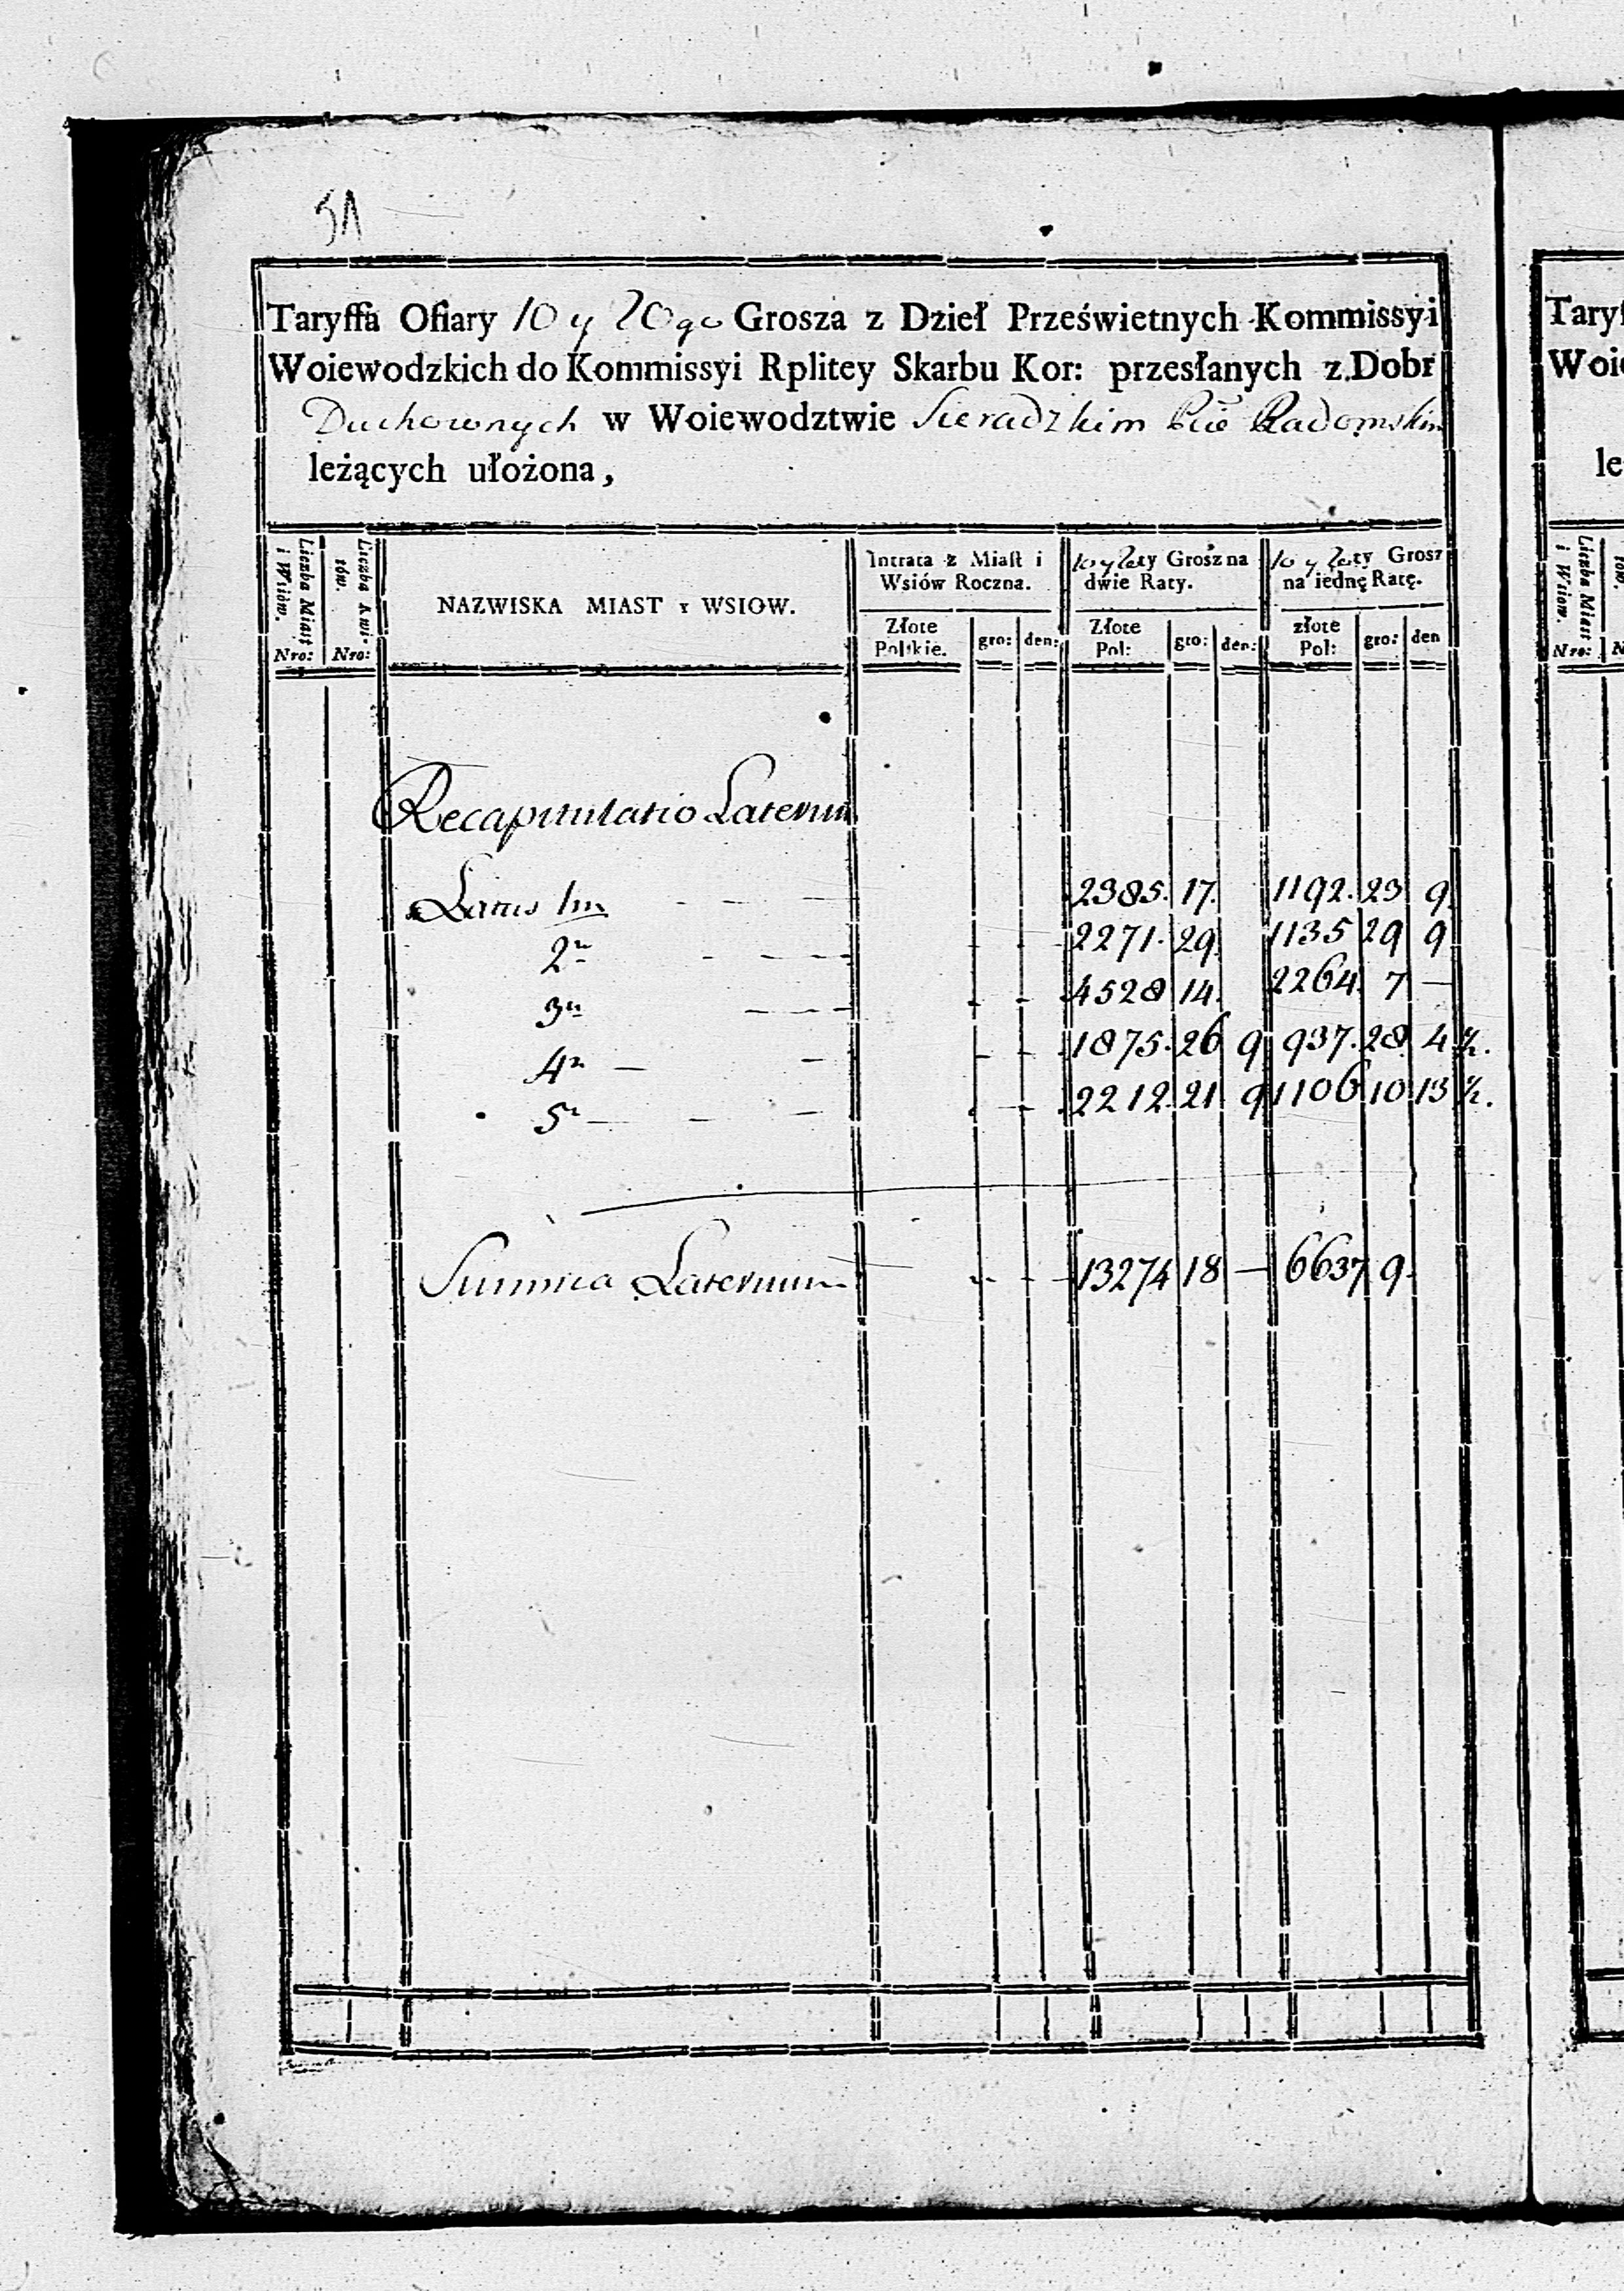 51
Taryffa Ofiary 10 y 20go Grosza z Dzieł Prześwietnych Kommissyi
Woiewodzkich do Kommissyi Rplitey Skarbu Kor: przesłanych z Dobr
Duchownych w Woiewodztwie Sieradzkim Pcie Radomskim
leżących ułożona,
Liczba Miast i Wsiów. Nro:
Nro:
NAZWISKA MIAST Y WSIOW.
Intrata z Miast i Wsiów Roczna.
Złote Polskie. gro: den:
10 y 20ty Grosz na dwie Raty.
Złote Pol: gro: den:
10 y 20ty Grosz na iednę Ratę.
złote Pol: gro: den
Recapitulatio Laterum
Latus 1m - - - 2385. 17. 1192. 23 9
2m - - - - 2271. 29 1135 29 9
3m - - - - 4528 14. 2264. 7 —
4m — - 1875. 26 9 937. 28 4 ½.
5m — - - 2212. 21 9 1106 10 13 ½.
Summa Laterum - - - 13274 18 — 6637 9
Tary
Woie
le
Liczba Miast i Wsiow.
Nro: N